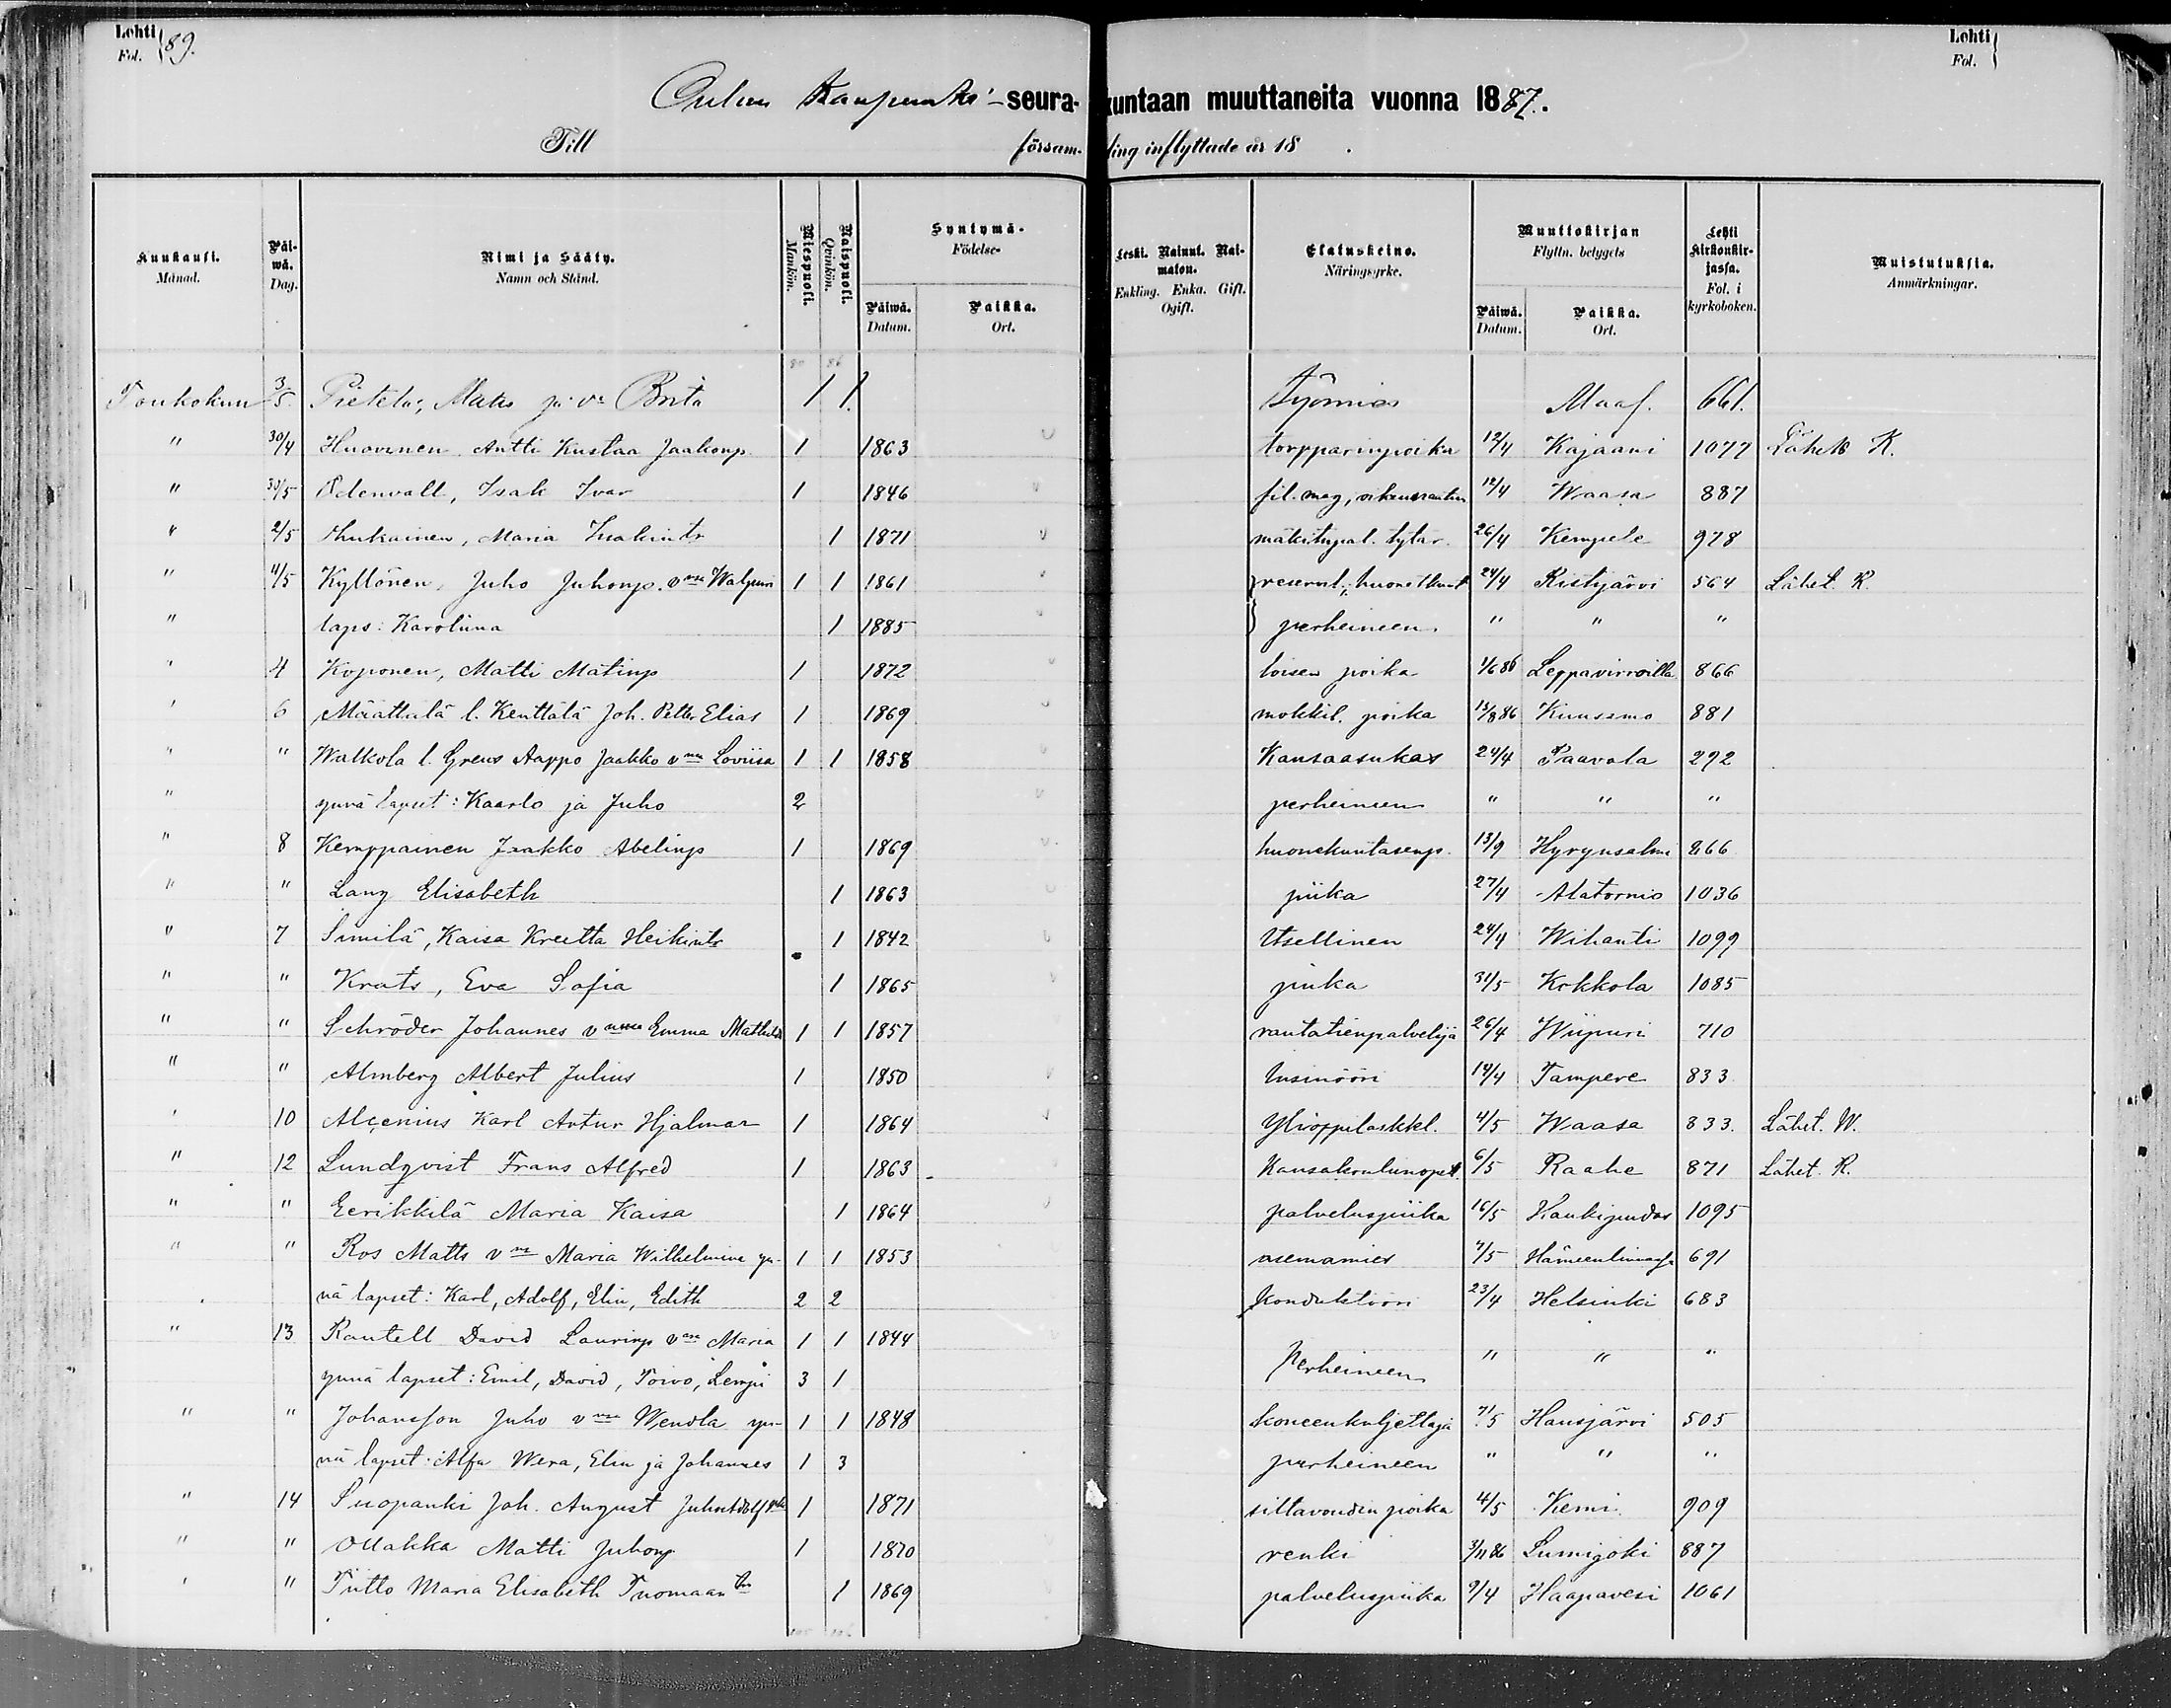 Lehti
Fol. } 89.
Lehti
Fol. }
Oulun Kaupunki -seura-kuntaan muuttaneita vuonna 1887.
Till församling inflyttade år 18 .
Kuukausi. Månad. Päiwä. Dag. Nimi ja Sääty. Namn och Stånd. Miespuoli. Mankön. Naispuoli. Qvinkön. Syntymä- Födelse- Päiwä. Datum. Paikka. Ort. Leski. Nainut. Naimaton. Enkling. Enka. Gift. Ogift. Elatuskeino. Näringsyrke. Muuttokirjan Flyttn. betygets Päiwä. Datum. Paikka. Ort. Lehti Kirkonkirjassa. Fol. i kyrkoboken. Muistutuksia. Anmärkningar.
Toukokuu 3/5 Matts ja vo Brita 1 1 Työmies Maas. 661.
" 30/4 Huovinen Antti Kustaa Jaakonp 1 1863 torpparinpoika 12/4 Kajaani 1077 K.
" Ödenvall, Isak Ivar 1 1846 fil. mag, 12/4 Waasa 887
" 2/5 Maria 1 1871 mäkitupal. tytär 26/4 Kempele 978
" 4/5 Kyllönen, Juho Juhonp. vmo Walpuri 1 1 1861 reservil, 24/4 Ristijärvi 564 Lähet. K.
" laps: Karoliina 1 1885 perheineen " " "
" 4 Koponen, Matti Matinp 1 1872 loisen poika 1/6 86 Leppävirroilla 866
" 6 Määttälä l. Kenttälä Joh. Petter Elias 1 1869 mökkil. poika 13/8 86 Kuusamo 881
" " Walkola l. Greus Aappo Jaakko vmo Loviisa 1 1 1858 Kansaasukas 24/4 Paavola 292
" ynnä lapset: Kaarlo ja Juho 2 perheineen " " "
" 8 Kemppainen Jaakko Abelinp 1 1869 huonekuntasenp. 13/9 Hyrynsalmi 866
" " Lang Elisabeth 1 1863 piika 27/4 Alatornio 1036
" 7 Similä, Kaisa Kreetta Heikintr 1 1842 Itsellinen 24/4 Wihanti 1099
" " Krats, Eva Sofia 1 1865 piika 31/5 Kokkola 1085
" " Schröder Johannes vmo Emma Mathilda 1 1 1857 rautatienpalvelija 26/4 Wiipuri 710
" " Almberg Albert Julius 1 1850 Insinööri 14/4 Tampere 833
" 10 Alcenius Karl Artur Hjalmar 1 1864 Ylioppilaskkl. 4/5 Waasa 833. Lähet. W.
" 12 Lundqvist Frans Alfred 1 1863 Kansakoulunopet. 6/5 Raahe 871 Lähet. R.
" " Eerikkilä Maria Kaisa 1 1864 palveluspiika 16/5 Haukipudas 1095
" " Ros Matts vmo Maria Wilhelmina yn- 1 1 1853 asemamies 7/5 Hämeenlinnasta 691
nä lapset: Karl, Adolf, Elin, Edith 2 2 Konduktööri 23/4 Helsinki 683
" 13 Rautell David Laurinp vmo Maria 1 1 1844
ynnä lapset: Emil, David, Toivo, Lempi 3 1 Perheineen " " "
" " Johansson Juho vmo Wendla yn- 1 1 1848 koneenkuljettaja 7/5 Hausjärvi 505
nä lapset: Alfa Wera, Elin ja Johannes 1 3 perheineen " " "
" 14 Suopanki Joh. August 1 1871 siltavoudin poika 4/5 Kemi 909
" " Ollakka Matti Juhonp 1 1870 renki 3/11 86 Lumijoki 887
" " Tiitto Maria Elisabeth Tuomaan tr 1 1869 palveluspiika 9/4 Haapavesi 1061